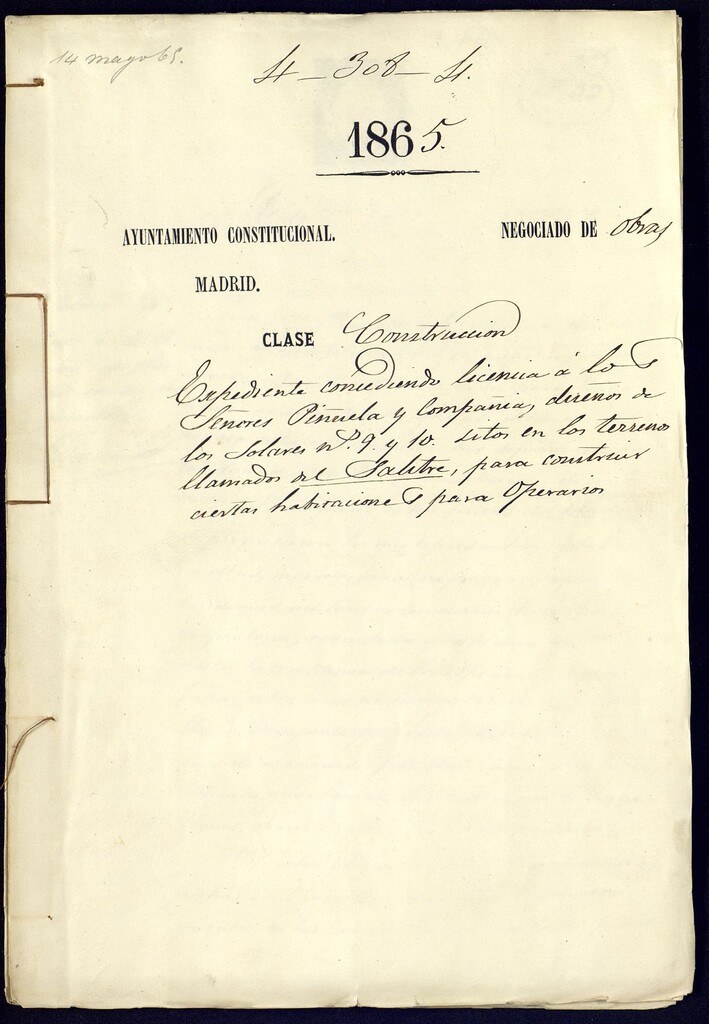 14 mayo 65.
4 - 308 - 4.
1865.
AYUNTAMIENTO CONSTITUCIONAL.
NEGOCIADO DE obras
MADRID.
CLASE Construccion
Expediente concediendo licencia á los
Señores Piñuela y Compañia, dueños de
los Solares nº. 9. y 10. sitos en los terrenos
llamados del Salitre, para construir
ciertas habitaciones para Operarios